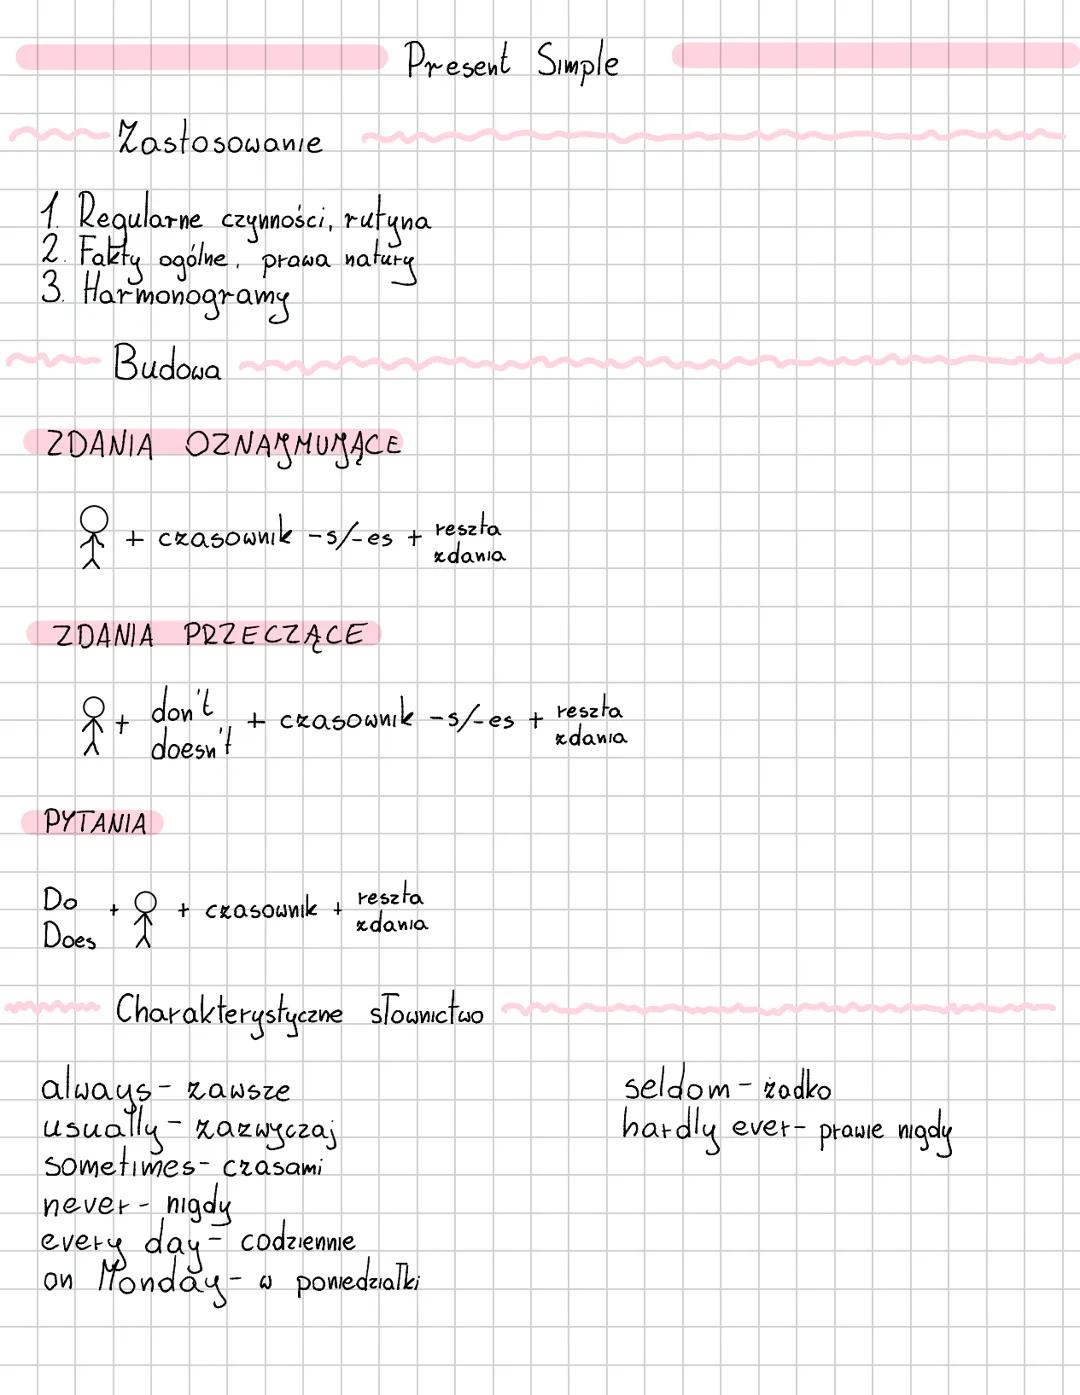 Present Simple
Zastosowanie
1. Regularne czynności, rutyna
2. Fakty ogólne, prawa natury
3. Harmonogramy
Budowa
ZDANIA OZNAJMUJĄCE
+ czasownik -s/-es + reszta zdania
ZDANIA PRZECZĄCE
+ don't doesn't + czasownik -s/-es + reszta zdania
PYTANIA
Do Does + + czasownik + reszta zdania
Charakterystyczne słownictwo
always - zawsze
usually - zazwyczaj
sometimes - czasami
never - nigdy
every day - codziennie
on Monday - w poniedziałki
seldom - żadko
hardly ever - prawie nigdy